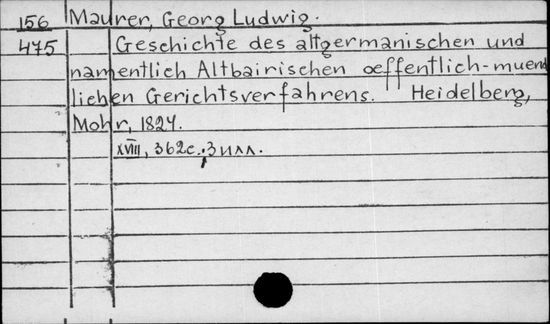 156 Maurer, Georg Ludwig.
475 Geschichte des altgermanischen und
namentlich Altbairischen oeffentlich-muend
lichen Gerichtsverfahrens. Heidelberg,
Mohr, 1824.
XVIII, 362с.; 3 илл.